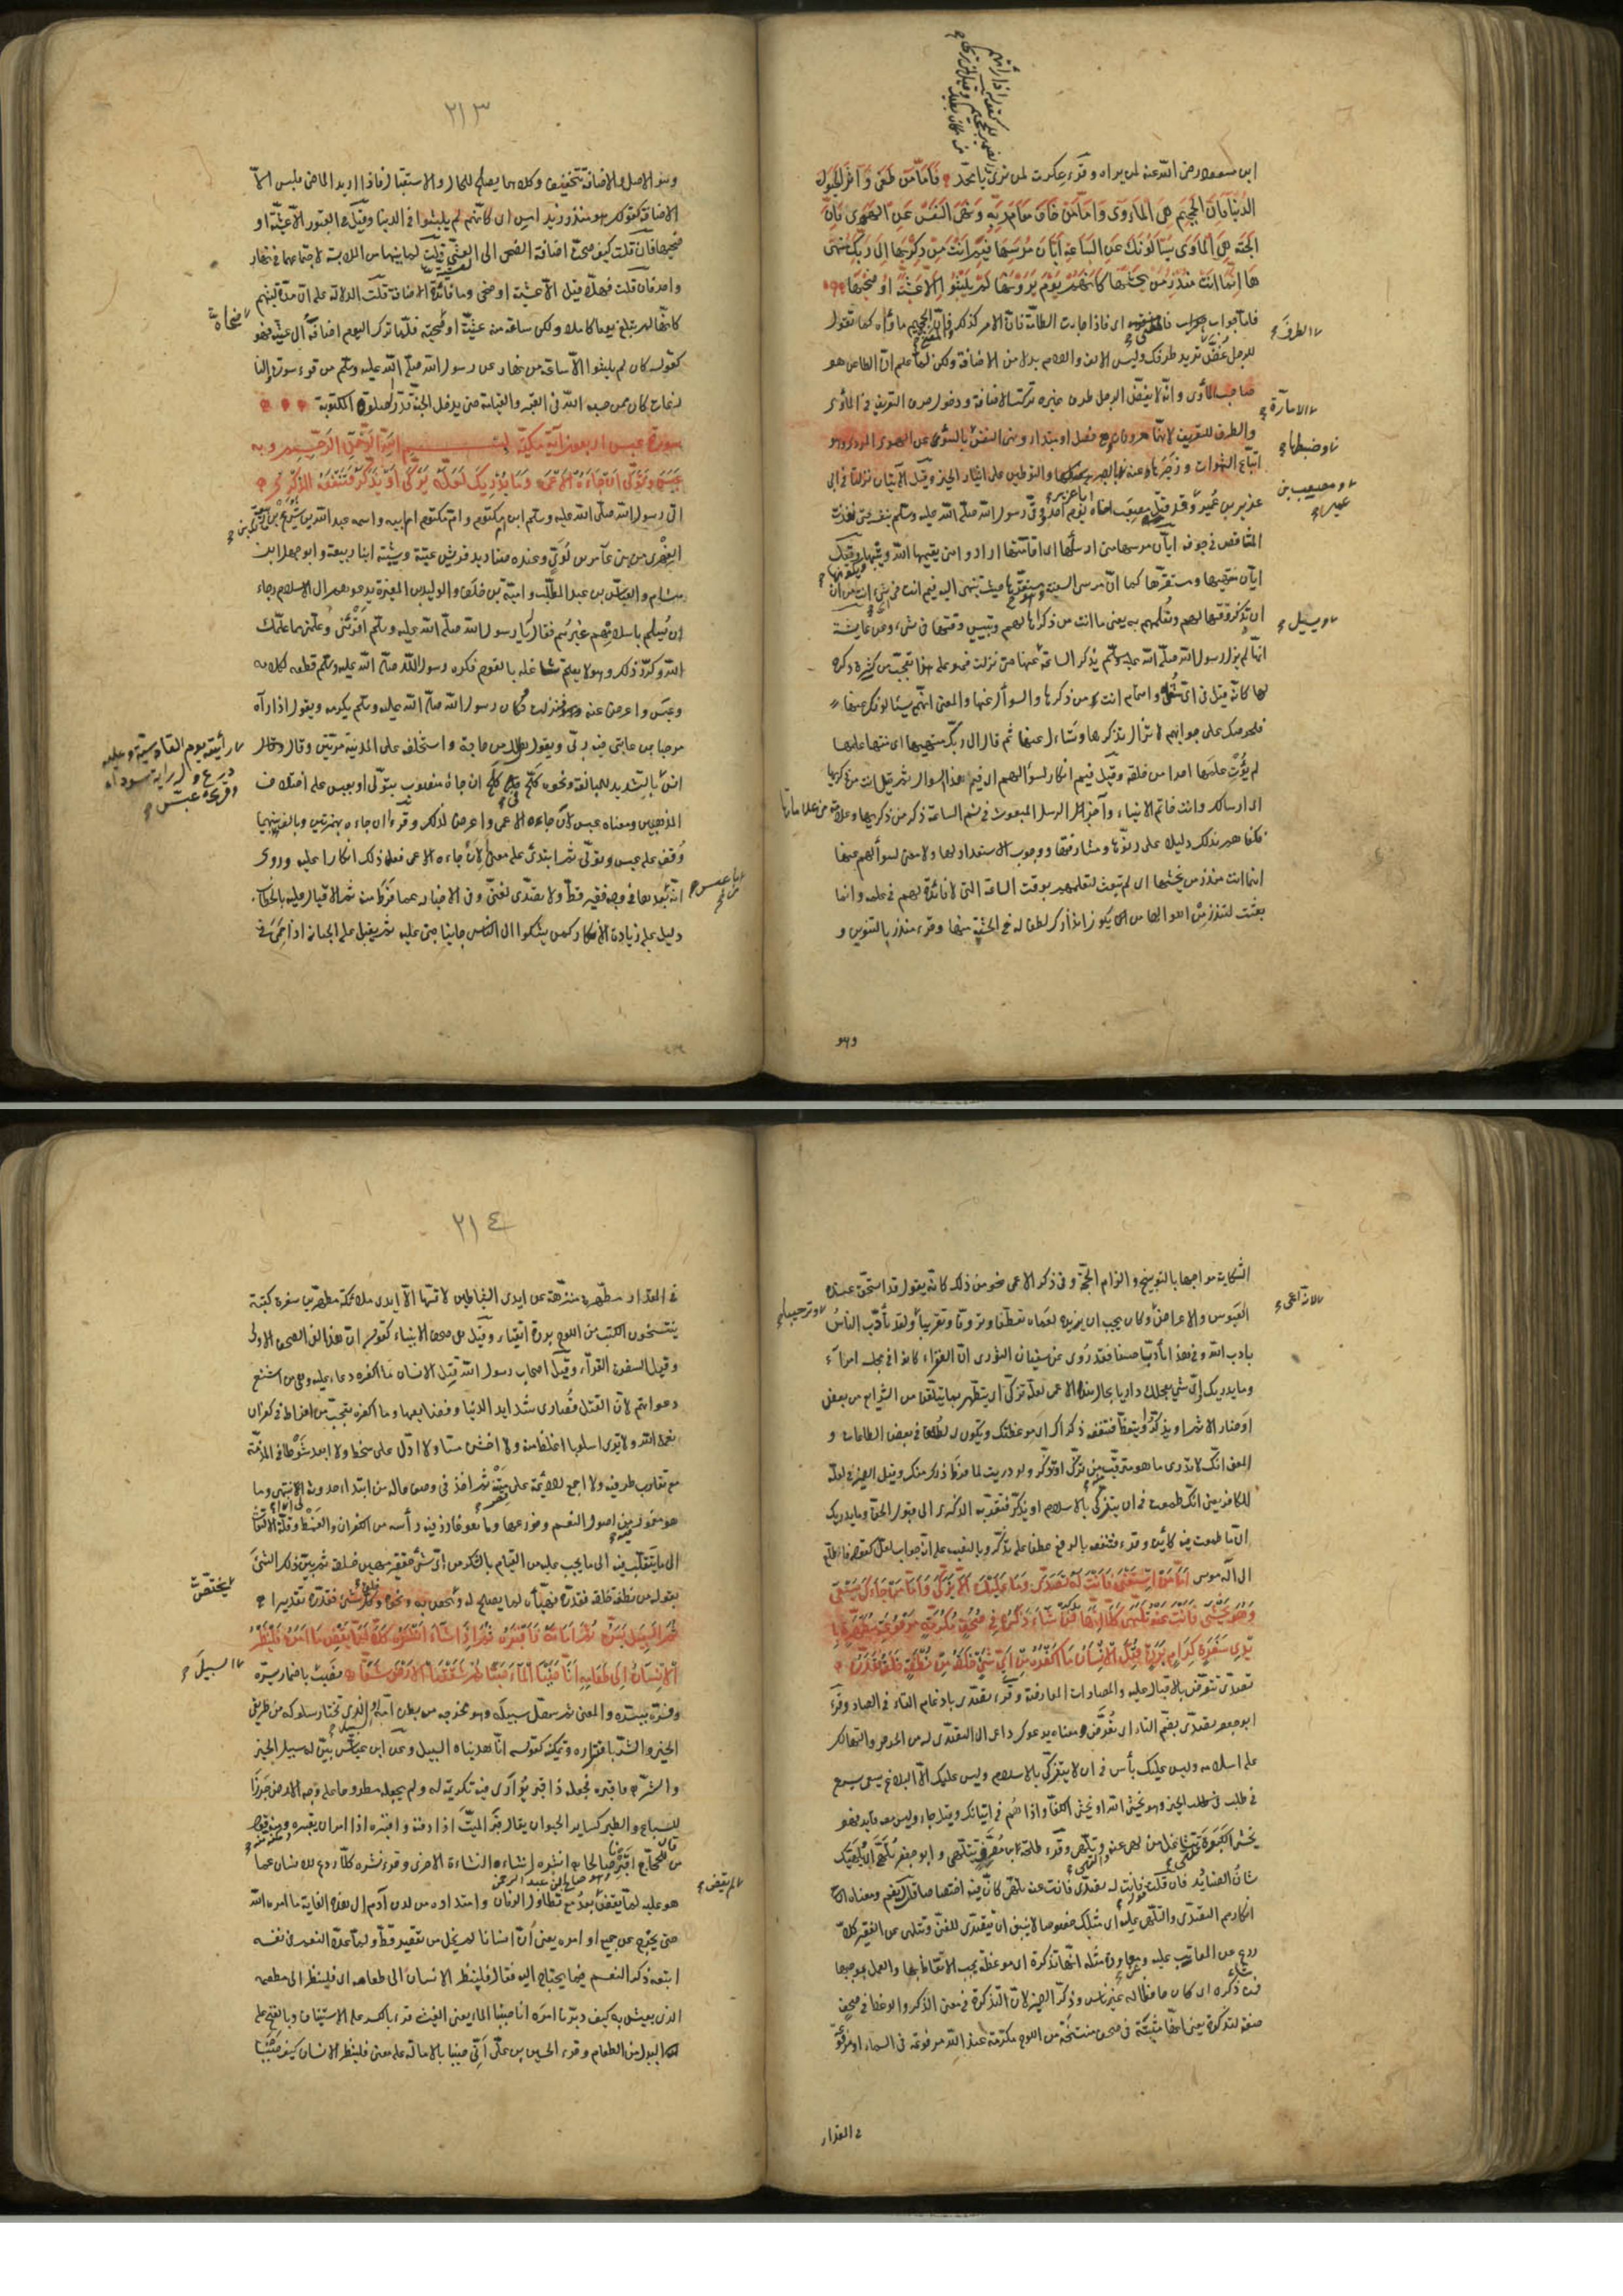 ابن مسعود رضي الله عنه لمن يراه وقرء عكرمة لمن ترى يا محمد فَأَمَّا مَنْ طَغَى وَآثَرَ الْحَيٰوةَ
الدُّنْيَا فَإِنَّ الْجَحِيمَ هِيَ الْمَأْوَى وَأَمَّا مَنْ خَافَ مَقَامَ رَبِّهِ وَنَهَى النَّفْسَ عَنِ الْهَوَى فَإِنَّ
الْجَنَّةَ هِيَ الْمَأْوَى يَسْأَلُونَكَ عَنِ السَّاعَةِ أَيَّانَ مُرْسَيهَا فِيمَ أَنْتَ مِنْ ذِكْرَيهَا إِلَى رَبِّكَ مُنْتَهَى
هَا إِنَّمَا أَنْتَ مُنْذِرُ مَنْ يَخْشَيهَا كَأَنَّهُمْ يَوْمَ يَرَوْنَهَا لَمْ يَلْبَثُوا إِلَّا عَشِيَّةً أَوْ ضُحَيهَا
فاما جواب فاذا اى فاذا جاءت الطامة فان الامر كذلك فان الجحيم ماواه كما تقول
للرجل غض الطرف تريد طرفك وليس الالف واللام بدلا من الاضافة ولكن لما علم ان الطاغى هو
صاحب المأوى وانه لا يغض الرجل طرف غيره تركت الاضافة ودخول حرف التعريف فى المأوى
والطرف للتعريف لانهما معروفان وهى فصل او مبتدا ونهى النفس الامارة بالسوء عن الهوى المردى وهو
اتباع الشهوات وزجرها عنه وضبطها بالصبر والتوطين على ايثار الخير وقيل الآيتان نزلتا فى ابى
عزيز بن عمير ومصعب بن عمير وقد قتل مصعب اخاه ابا عزيز يوم احد ووقى رسول الله صلى الله عليه وسلم بنفسه حتى نفذت
المشاقص فى جوفه ايان مرسيها متى ارساؤها اى اقامتها ارادوا متى يقيمها الله ويثبتها ويكونها وقيل
ايان منتهيها ومستقرها كما ان مرسى السفينة مستقرها حيث تنتهى اليه فيم انت فى اى شىء انت من
ان تذكر وقتها لهم وتعلمهم به يعنى ما انت من ذكراها لهم وتبيين وقتها فى شىء وعن عايشة
انها لم يزل رسول الله صلى الله عليه وسلم يذكر الساعة ويسئل عنها حتى نزلت فهو على هذا تعجب من كثرة ذكره
لها كانه قيل فى اى شغل واهتمام انت من ذكرها والسوأل عنها والمعنى انهم يسئلونك عنها
فلحرصك على جوابهم لا تزال تذكرها وتسأل عنها ثم قال الى ربك منتهيها اى منتها علمها
لم يؤت علمها احدا من خلقه وقيل فيم انكار لسؤالهم اى فيم هذا السوأل ثم قيل انت من ذكريها
اى ارسالك وانت خاتم الانبياء وآخر الرسل المبعوث فى نسم الساعة ذكر من ذكريها وعلامة من علاماتها
فكفاهم بذلك دليلا على دنوها ومشارفتها ووجوب الاستعداد لها ولا معنى لسوألهم عنها
انما انت منذر من يخشها اى لم تبعث لتعلمهم بوقت الساعة التى لا فائدة لهم فى علمه وانما
بعثت لتنذر من اهوالها من يكون انذارك لطفا له فى الخشية منها وقرء منذر بالتنوين و
وهو
٢١٣
وهو الاصل والاضافة تخفيف وكلاهما يصلح للحال والاستقبال فاذا اريد الماضى فليس الا
الاضافة كقولك هو منذر زيد امس اى كانهم لم يلبثوا فى الدنيا وقيل فى القبور الا عشية او
ضحيها فان قلت كيف صحت اضافة الضحى الى العشية قلت لما بينهما من الملابسة لاجتماعهما فى نهار
واحد فان قلت فهلا قيل الا عشية او ضحى وما فائدة الاضافة قلت الدلالة على ان مدة لبثهم
كانها لم يبلغ يوما كاملا ولكن ساعة منه عشيته او ضحيته فلما ترك اليوم اضافه الى عشيته فهو
كقوله كان لم يلبثوا الا ساعة من نهار عن رسول الله صلى الله عليه وسلم من قرء سورة والنا
زعات كان ممن حبسه الله فى القبر والقيامة حتى يدخل الجنة قدر صلوة المكتوبة
سورة عبس اربعون آية مكية بسم الله الرحمن الرحيم وبه
عَبَسَ وَتَوَلَّى أَنْ جَاءَهُ الْأَعْمَى وَمَا يُدْرِيكَ لَعَلَّهُ يَزَّكَّى أَوْ يَذَّكَّرُ فَتَنْفَعَهُ الذِّكْرَى
اتى رسول الله صلى الله عليه وسلم ابن ام مكتوم وام مكتوم ام ابيه واسمه عبد الله بن شريح بن مالك بن
الفهرى من بنى عامر بن لوى وعنده صناديد قريش عتبة وشيبة ابنا ربيعة وابو جهل ابن
هشام والعباس بن عبد المطلب وامية بن خلف والوليد بن المغيرة يدعوهم الى الاسلام رجاء
ان يسلم باسلامهم غيرهم فقال يا رسول الله صلى الله عليه وسلم اقرئنى وعلمنى مما علمك
الله وكرر ذلك وهو لا يعلم تشاغله بالقوم فكره رسول الله صلى الله عليه وسلم قطعه لكلامه
وعبس واعرض عنه فنزلت فكان رسول الله صلى الله عليه وسلم يكرمه ويقول اذا رآه
مرحبا بمن عاتبنى فيه ربى ويقول هل لك من حاجة واستخلفه على المدينة مرتين وقال
انس رأيته يوم القادسية وعليه درع وله راية سوداء وقرىء عبس بالتشديد للمبالغة ونحوه كلح فى كلح ان جاءه منصوب بتولى او بعبس على اختلاف
المذهبين ومعناه عبس لان جاءه الاعمى واعرض لذلك وقرء أان جاءه بهمزتين وبالف بينهما
وقف على عبس وتولى ثم ابتدى على معنى ألان جاءه الاعمى فعل ذلك انكارا عليه وروى
انه ما عبس بعدها فى وجه فقير قط ولا تصدى لغنى وفى الاخبار عما فرط منه ثم الاقبال عليه بالخطاب
دليل على زيادة الانكار كمن يشكوا الى الناس جانيا جنى عليه ثم يقبل على الجانى اذا حمى فى
الشكاية مواجها بالتوبيخ والزام الحجة وفى ذكر الاعمى نحو من ذلك كانه يقول قد استحق عنده
العبوس والاعراض لانه اعمى وكان يجب ان يزيده لعماه تعطفا وترؤفا وتقريبا وترحيبا ولقد تأدب الناس
بادب الله فى هذا تأدبا حسنا فقد روى عن سفيان الثورى ان الفقراء كانوا فى مجلسه امراء
وما يدريك واى شىء يجعلك داريا بحال هذا الاعمى لعله تزكى اى يتطهر بما يتلقن من الشرايع من بعض
اوضار الاثم او يذكر او يتعظ فتنفعه ذكراك اى موعظتك ويكون له لطفا فى بعض الطاعات و
المعنى انك لا تدرى ما هو مترقب منه من تزك او تذكر ولو دريت لما فرط ذلك منك وقيل الضمير فى لعله
للكافر يعنى انك طمعت فى ان يتزكى بالاسلام او يذكر فتقربه الذكرى الى قبول الحق وما يدريك
ان ما طمعت فيه كائن وقرء فتنفعه بالرفع عطفا على يذكر وبالنصب على انه جواب لعل كقوله فاطلع
الى اله موسى أَمَّا مَنِ اسْتَغْنَى فَأَنْتَ لَهُ تَصَدَّى وَمَا عَلَيْكَ أَلَّا يَزَّكَّى وَأَمَّا مَنْ جَاءَكَ يَسْعَى
وَهُوَ يَخْشَى فَأَنْتَ عَنْهُ تَلَهَّى كَلَّا إِنَّهَا تَذْكِرَةٌ فَمَنْ شَاءَ ذَكَرَهُ فِي صُحُفٍ مُكَرَّمَةٍ مَرْفُوعَةٍ مُطَهَّرَةٍ بِأَ
يْدِي سَفَرَةٍ كِرَامٍ بَرَرَةٍ قُتِلَ الْإِنْسَانُ مَا أَكْفَرَهُ مِنْ أَيِّ شَيْءٍ خَلَقَهُ مِنْ نُطْفَةٍ خَلَقَهُ فَقَدَّرَهُ
تصدى تتعرض بالاقبال عليه والمصاداة المعارضة وقرء تصدى بادغام التاء فى الصاد وقرء
ابو جعفر تصدى بضم التاء اى تعرض ومعناه يدعوك داع الى التصدى له من الحرص والتهالك
على اسلامه وليس عليك بأس فى ان لا يتزكى بالاسلام وليس عليك الا البلاغ يسعى يسرع
فى طلب الخير وهو يخشى الله او يخشى الكفار واذاهم فى اتيانك وقيل جاء وليس معه قايد فهو
يخشى الكبوة تلهى تتشاغل من لهى عنه والتهى وتلهى وقرء طلحة بن مصرف تتلهى وابو جعفر تلهى اى يلهيك
شأن الصناديد فان قلت قوله فانت له تصدى فانت عنه تلهى كان فيه اختصاصا قلت نعم ومعناه
انكار التصدى والتلهى عليه اى مثلك خصوصا لا ينبغى ان يتصدى للغنى ويتلهى عن الفقير كلا
ردع عن المعاتب عليه وعن معاودة مثله انها تذكرة اى موعظة يجب الاتعاظ بها والعمل بموجبها
فمن شاء ذكره اى كان حافظا له غير ناس وذكر الضمير لان التذكرة فى معنى الذكر والوعظ فى صحف
صفة لتذكرة يعنى انها مثبتة فى صحف منتسخة من اللوح مكرمة عند الله مرفوعة فى السماء او مرفوعة
فى المقدار
٢١٤
فى المقدار مطهرة منزهة عن ايدى الشياطين لا تمسها الا ايدى ملائكة مطهرين سفرة كتبة
ينتسخون الكتب من اللوح بررة اتقياء وقيل هى صحف الانبياء كقوله ان هذا لفى الصحف الاولى
وقيل السفرة القراء وقيل اصحاب رسول الله قتل الانسان ما اكفره دعاء عليه وهى من اشنع
دعواتهم لان القتل قصارى شدايد الدنيا وفظايعها وما اكفره تعجب من افراط فى كفران
نعمة الله ولا ترى اسلوبا اغلظ منه ولا اخشن مسا ولا ادل على سخط ولا ابعد شوطا فى المذمة
مع تقارب طرفيه ولا اجمع للائمة على قصر متنه ثم اخذ فى وصف حاله من ابتداء حدوثه الى ان انتهى وما
هو مغمور فيه من اصول النعم وفروعها وما هو غارز فيه رأسه من الكفران والغمط وقلة الالتفات
الى ما يتقلب فيه الى ما يجب عليه من القيام بالشكر من اى شىء حقير مهين خلقه ثم بين ذلك الشىء
بقوله من نطفة خلقه فقدره فهيأه لما يصلح له ويختص به ونحوه وخلق كل شىء فقدره تقديرا
ثُمَّ السَّبِيلَ يَسَّرَهُ ثُمَّ أَمَاتَهُ فَأَقْبَرَهُ ثُمَّ إِذَا شَاءَ أَنْشَرَهُ كَلَّا لَمَّا يَقْضِ مَا أَمَرَهُ فَلْيَنْظُرِ
الْإِنْسَانُ إِلَى طَعَامِهِ أَنَّا صَبَبْنَا الْمَاءَ صَبًّا ثُمَّ شَقَقْنَا الْأَرْضَ شَقًّا نصب السبيل باضمار يسره
وفسره بيسره والمعنى ثم سهل سبيله وهو مخرجه من بطن امه او السبيل الذى تختار سلوكه من طريقى
الخير والشر باقداره وتمكينه كقوله انا هديناه السبيل وعن ابن عباس بين له سبيل الخير
والشر فاقبره فجعله ذا قبر يوارى فيه تكرمة له ولم يجعله مطروحا على وجه الارض جزرا
للسباع والطير كساير الحيوان يقال قبر الميت اذا دفنه واقبره اذا امر ان يقبره ومنه قول
من قال للحجاج اقبرنا صالحا انشره انشاءه النشاءة الاخرى وقرء نشره كلا ردع للانسان عما
هو عليه لما يقض لم يقض بعد مع تطاول الزمان وامتداده من لدن آدم الى هذه الغاية ما امره الله
حتى يخرج عن جميع اوامره يعنى ان انسانا لم يخل من تقصير قط ولما عدد النعم فى نفسه
اتبعه ذكر النعم فيما يحتاج اليه فقال فلينظر الانسان الى طعامه اى فلينظر الى مطعمه
الذى يعيش به كيف دبرنا امره انا صببنا الماء يعنى الغيث قرء بالكسر على الاستيناف وبالفتح على
البدل من الطعام وقرء الحسين بن على انى صببنا بالامالة على معنى فلينظر الانسان كيف صببنا